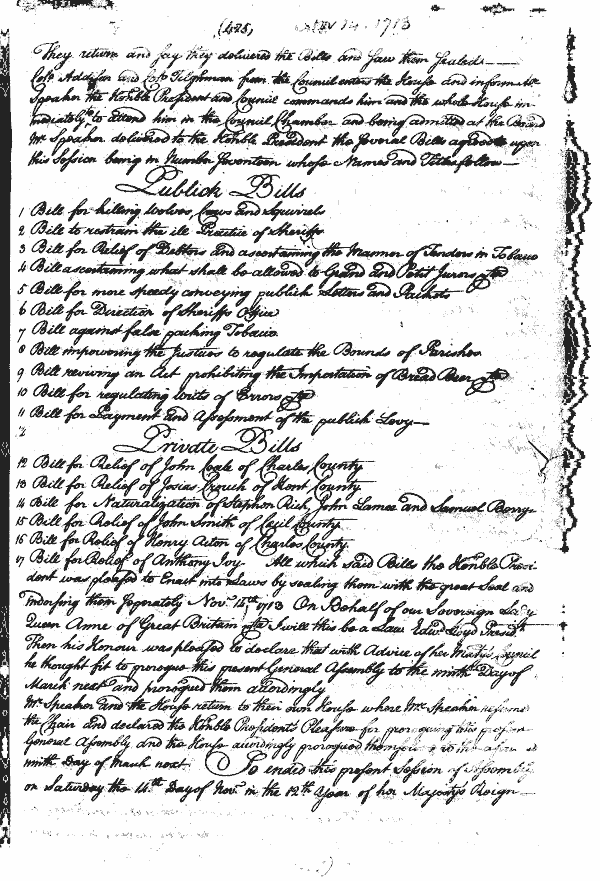 (425) Nov 14. 1713
They return and say they delivered the Bills and saw them Sealed
Colo. Addison and Colo. Tilghman from the Council enters the House and informs Mr.
Speaker the Honble President and Council commands him and the whole House im-
mediately to attend him in the Council Chamber and being admitted at the Board
Mr. Speaker delivered to the Honble President the several Bills agreed to upon
this Session being in Number Seventeen whose Names and Titles follow
Publick Bills
1 Bill for killing Wolves, Crows and Squirrels
2 Bill to restrain the ill Practice of Sheriffs
3 Bill for Relief of Debtors and ascertaining the Manner of Tenders in Tobaco
4 Bill ascertaining what shall be allowed to Grand and Petit Jurors &ca
5 Bill for more speedy conveying publick Letters and Packets
6 Bill for Direction of Sheriffs Office
7 Bill against false packing Tobacco
8 Bill impowering the Justices to regulate the Bounds of Parishes
9 Bill reviving an Act prohibiting the Importation of Bread Beer &ca
10 Bill for regulating Writs of Errors &ca
11 Bill for Payment and Assessment of the publick Levy
Private Bills
12 Bill for Relief of John Coale of Charles County
13 Bill for Relief of Josias Crouch of Kent County
14 Bill for Naturalization of Stephen Rich, John Lamee and Samuel Berry
15 Bill for Relief of John Smith of Cecil County
16 Bill for Relief of Henry Acton of Charles County
17 Bill for Relief of Anthony Ivy All which said Bills the Honble Presi-
dent was pleased to Enact into Laws by sealing them with the great Seal and
indorsing them seperately Nov. 14th 1713 On Behalf of our Sovereign Lady
Queen Anne of Great Britain &ca I will this be a Law Edwd Lloyd Presidt
Then his Honour was pleased to declare that with Advice of her Matys Council
he thought fit to prorogue this present General Assembly to the ninth Day of
March next and prorogued them accordingly
Mr. Speaker and the House return to their own House where Mr. Speaker
the Chair and declared the Honble Presidents Pleasure for proroguing this present
General Assembly and the House accordingly prorogued themselves to the afores
ninth Day of March next So ended this present Session of Assembly
on Saturday the 14th Day of Nov. in the 12th Year of her Majestys Reign